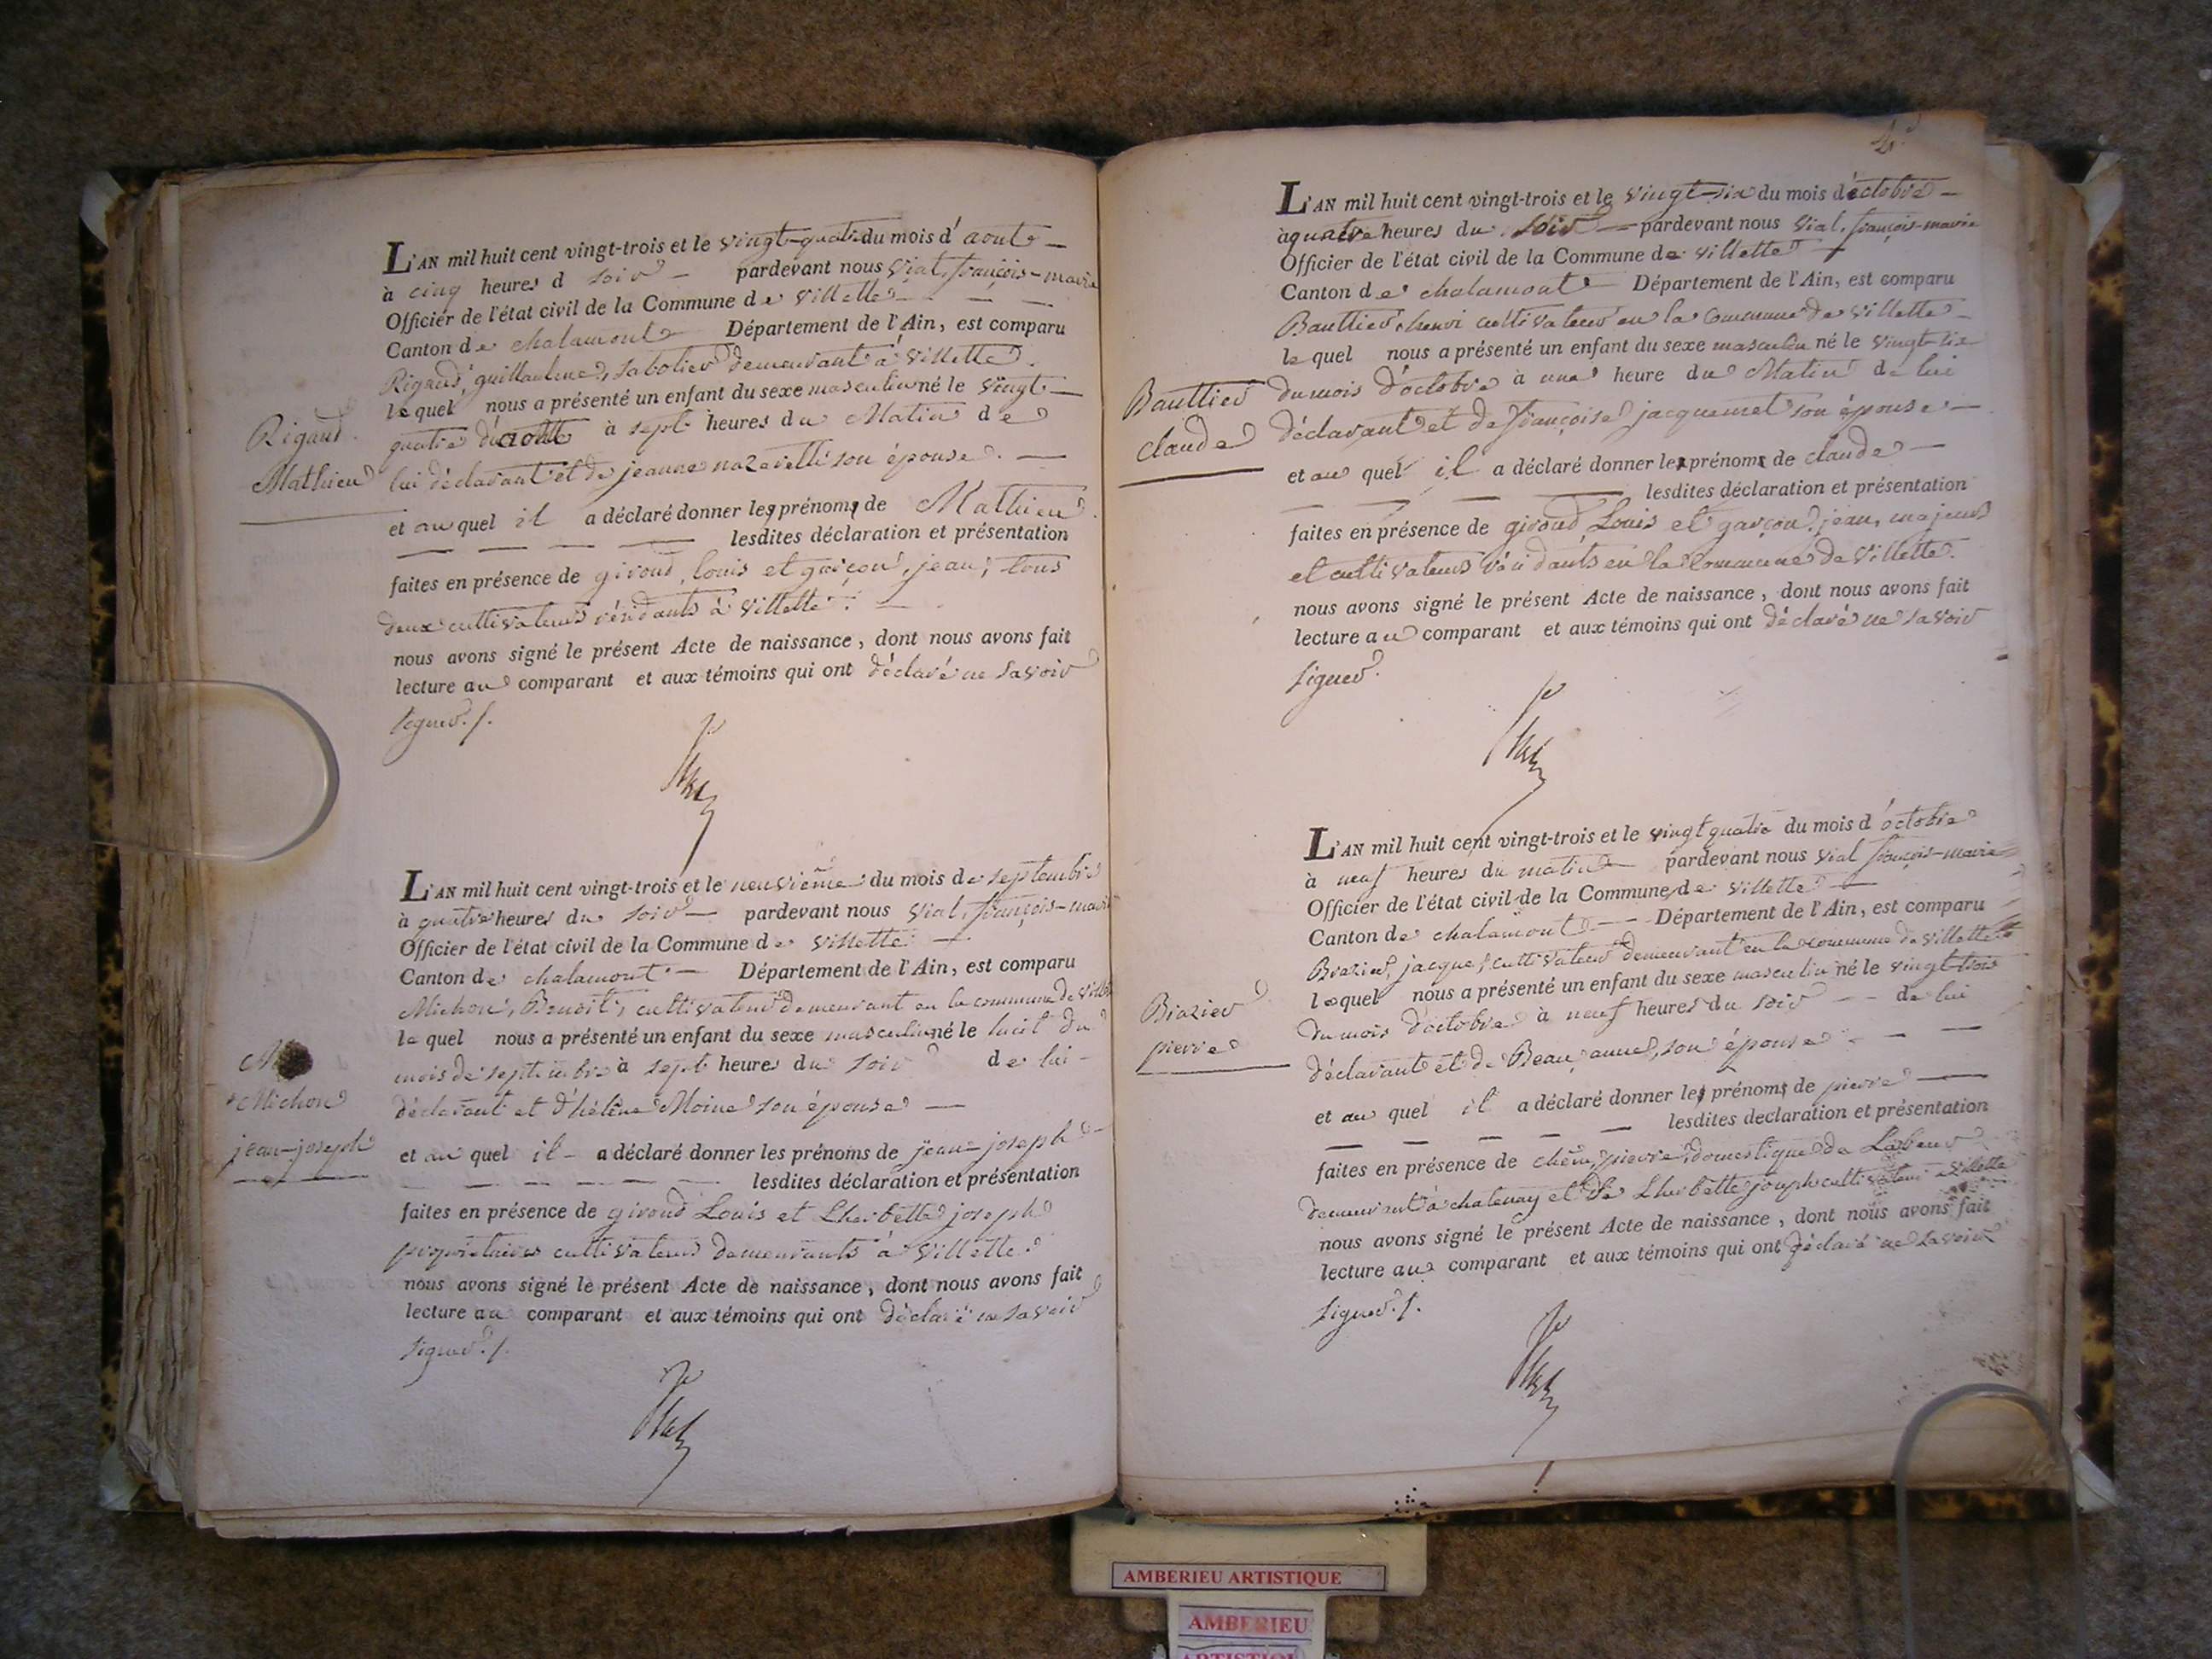 L'AN mil huit cent vingt-trois et le vingt-quatre du mois d'aout
à cinq heures d soir pardevant nous Vial, françois-marie
Officier de l'état civil de la Commune de Villette
Canton de chalamont Département de l'Ain, est comparu
Rigaud, guillaulme, sabotier demeurant à Villette.
lequel nous a présenté un enfant du sexe masculin né le vingt
quatre du aoutt à sept heures du Matin de
lui déclarant et de jeanne nazaretti son épouse.
et au quel il a déclaré donner les prénoms de Mathieu
lesdites déclaration et présentation
faites en présence de giroud, louis et garçon, jean, tous
deux cultivateurs résidants à Villette.
nous avons signé le présent Acte de naissance, dont nous avons fait
lecture au comparant et aux témoins qui ont déclaré ne savoir
signer.
Rigaud
Mathieu
L'AN mil huit cent vingt-trois et le neuvième du mois de septembre
à quatre heures du soir pardevant nous Vial, françois-marie
Officier de l'état civil de la Commune de Villette
Canton de chalamont Département de l'Ain, est comparu
Michon, Benoit, cultivateur demeurant en la commune de Villette
lequel nous a présenté un enfant du sexe masculin né le huit du
mois de septembre à sept heures du soir de lui
déclarant et d'hélène Moine son épouse
et au quel il a déclaré donner les prénoms de jean-joseph
lesdites déclaration et présentation
faites en présence de giroud Louis et Lherbette joseph
propriétaires cultivateurs demeurants à Villette.
nous avons signé le présent Acte de naissance, dont nous avons fait
lecture au comparant et aux témoins qui ont déclaré ne savoir
signer.
Michon
jean-joseph
L'AN mil huit cent vingt-trois et le vingt-six du mois d'octobre
à quatre heures du soir pardevant nous Vial, françois-marie
Officier de l'état civil de la Commune de Villette
Canton de chalamont Département de l'Ain, est comparu
Bauttier, henri cultivateur en la Commune de Villette
lequel nous a présenté un enfant du sexe masculin né le vingt-six
du mois d'octobre à une heure du Matin de lui
déclarant et de françoise jacquemet son épouse
et au quel il a déclaré donner les prénoms de claude
lesdites déclaration et présentation
faites en présence de giroud, Louis et garçon, jean, majeurs
et cultivateurs résidants en la commune de Villette.
nous avons signé le présent Acte de naissance, dont nous avons fait
lecture au comparant et aux témoins qui ont déclaré ne savoir
signer.
Bauttier
claude
L'AN mil huit cent vingt-trois et le vingt quatre du mois d'octobre
à neuf heures du matin pardevant nous Vial françois-marie
Officier de l'état civil de la Commune de Villette
Canton de chalamont Département de l'Ain, est comparu
Brazier, jacque, cultivateur demeurant en la commune de Villette
lequel nous a présenté un enfant du sexe masculin né le vingt-trois
du mois d'octobre à neuf heures du soir de lui
déclarant et de Beau, anne, son épouse
et au quel il a déclaré donner les prénoms de pierre
lesdites declaration et présentation
faites en présence de pierre domestique de
demeurant à chatenay et de Lherbette joseph cultivateur Villette
nous avons signé le présent Acte de naissance, dont nous avons fait
lecture au comparant et aux témoins qui ont déclaré ne savoir
signer.
Brazier
pierre
AMBERIEU ARTISTIQUE
AMBERIEU
ARTISTIQU